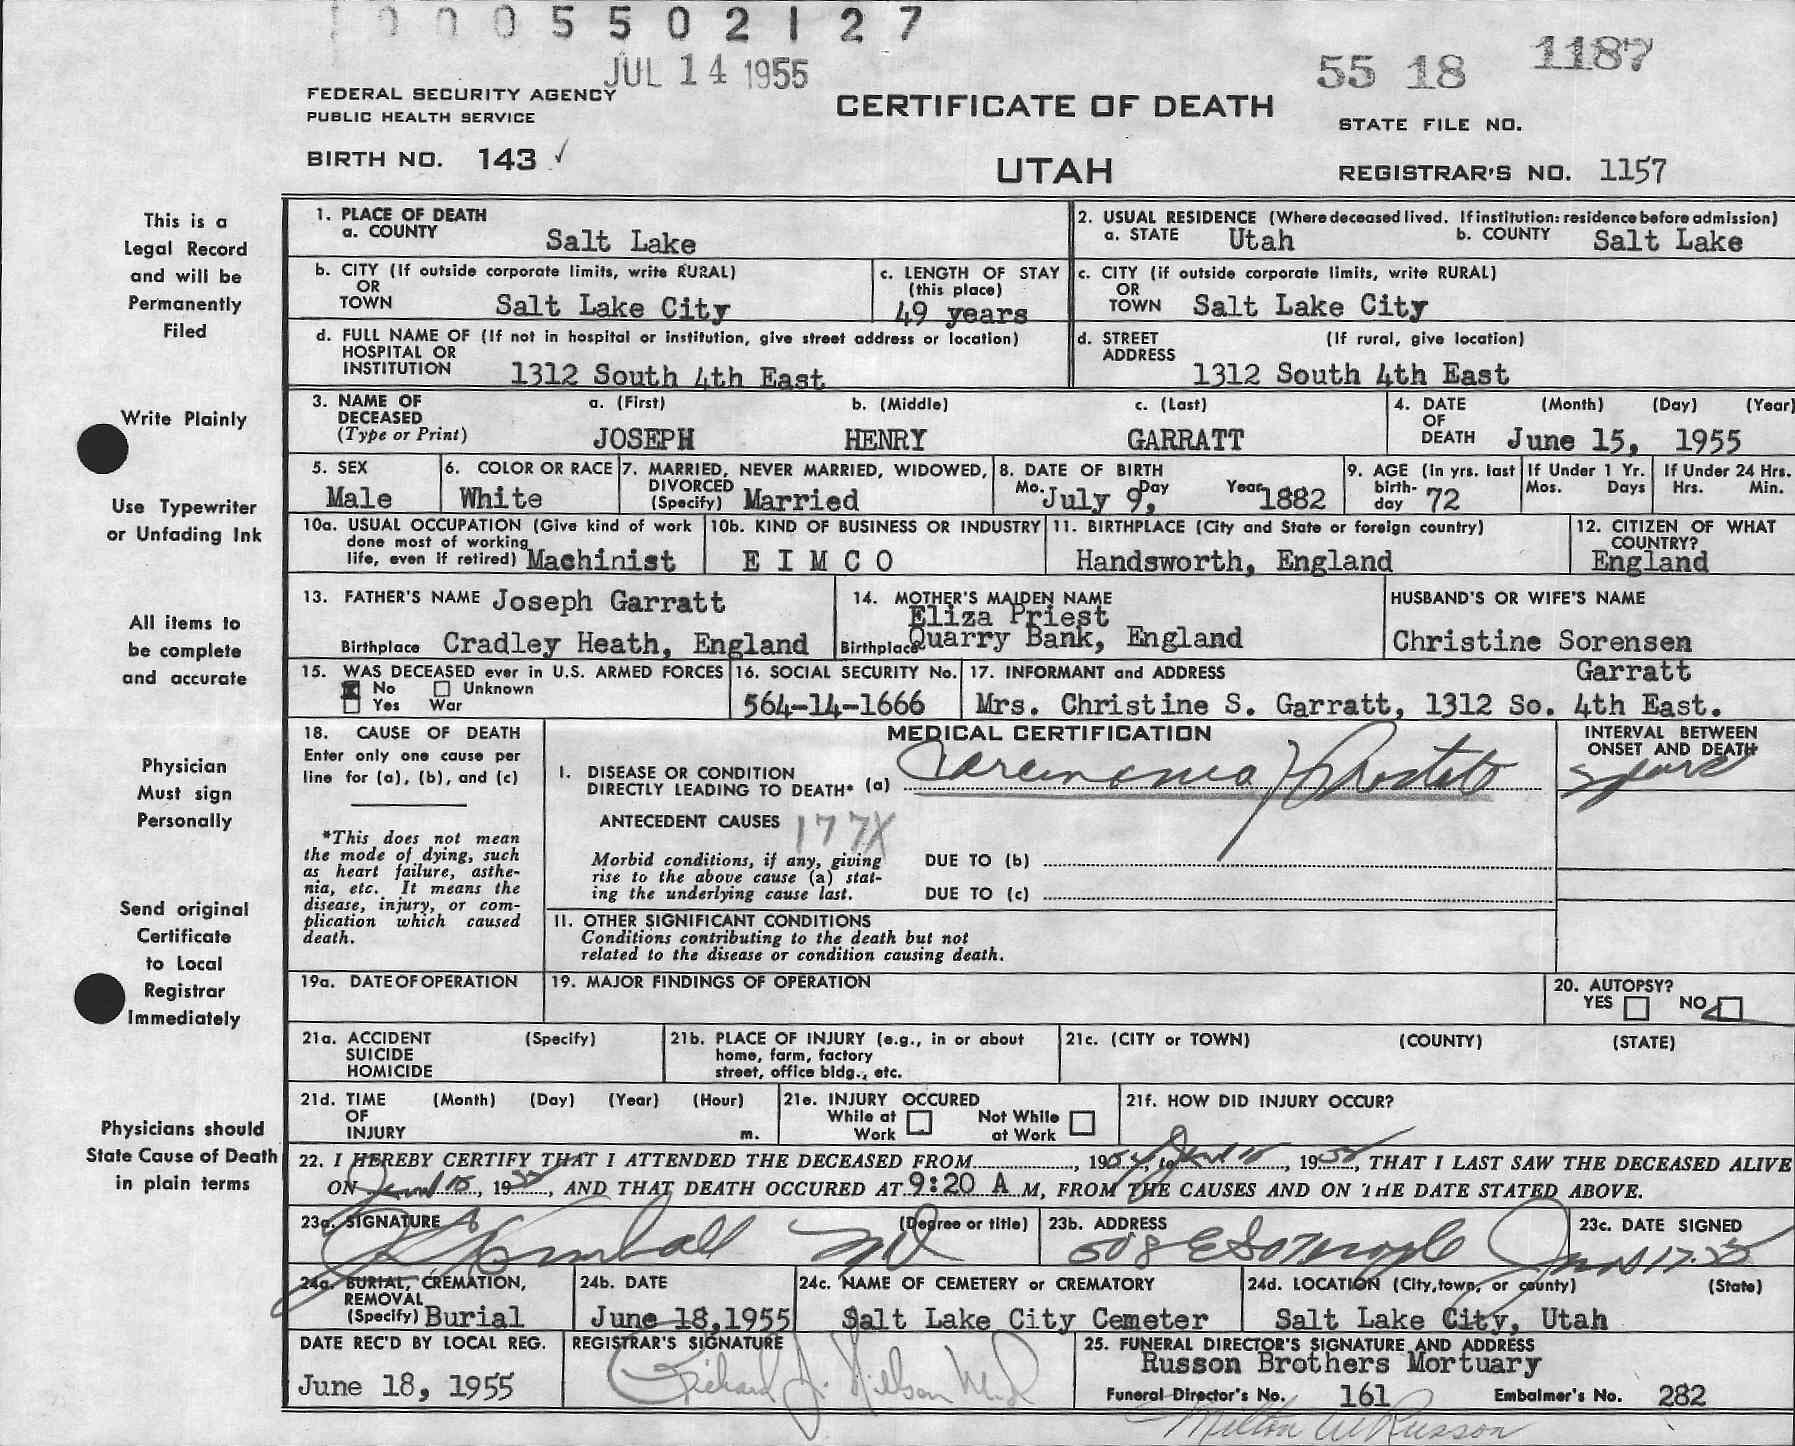 0005502127
JUL 14 1955
55 18 1187
FEDERAL SECURITY AGENCY
PUBLIC HEALTH SERVICE
CERTIFICATE OF DEATH
STATE FILE NO.
BIRTH NO. 143 ✓
UTAH
REGISTRAR'S NO. 1157
This is a
Legal Record
and will be
Permanently
Filed
Write Plainly
Use Typewriter
or Unfading Ink
All items to
be complete
and accurate
Physician
Must sign
Personally
Send original
Certificate
to Local
Registrar
Immediately
Physicians should
State Cause of Death
in plain terms
1. PLACE OF DEATH
a. COUNTY Salt Lake
2. USUAL RESIDENCE (Where deceased lived. If institution: residence before admission)
a. STATE Utah b. COUNTY Salt Lake
b. CITY (If outside corporate limits, write RURAL)
OR
TOWN Salt Lake City
c. LENGTH OF STAY
(this place)
49 years
c. CITY (if outside corporate limits, write RURAL)
OR
TOWN Salt Lake City
d. FULL NAME OF (If not in hospital or institution, give street address or location)
HOSPITAL OR
INSTITUTION 1312 South 4th East
d. STREET (If rural, give location)
ADDRESS
1312 South 4th East
3. NAME OF a. (First) b. (Middle) c. (Last)
DECEASED
(Type or Print) JOSEPH HENRY GARRATT
4. DATE (Month) (Day) (Year)
OF
DEATH June 15, 1955
5. SEX
Male
6. COLOR OR RACE
White
7. MARRIED, NEVER MARRIED, WIDOWED,
DIVORCED
(Specify) Married
8. DATE OF BIRTH
Mo. July 9, Day Year 1882
9. AGE (In yrs. last
birth-
day 72
If Under 1 Yr.
Mos. Days
If Under 24 Hrs.
Hrs. Min.
10a. USUAL OCCUPATION (Give kind of work
done most of working
life, even if retired) Machinist
10b. KIND OF BUSINESS OR INDUSTRY
E I M C O
11. BIRTHPLACE (City and State or foreign country)
Handsworth, England
12. CITIZEN OF WHAT
COUNTRY?
England
13. FATHER'S NAME Joseph Garratt
Birthplace Cradley Heath, England
14. MOTHER'S MAIDEN NAME
Eliza Priest
Birthplace Quarry Bank, England
HUSBAND'S OR WIFE'S NAME
Christine Sorensen
Garratt
15. WAS DECEASED ever in U.S. ARMED FORCES
No Unknown
Yes War
16. SOCIAL SECURITY No.
564-14-1666
17. INFORMANT and ADDRESS
Mrs. Christine S. Garratt, 1312 So. 4th East.
18. CAUSE OF DEATH
Enter only one cause per
line for (a), (b), and (c)
*This does not mean
the mode of dying, such
as heart failure, asthe-
nia, etc. It means the
disease, injury, or com-
plication which caused
death.
MEDICAL CERTIFICATION
INTERVAL BETWEEN
ONSET AND DEATH
I. DISEASE OR CONDITION
DIRECTLY LEADING TO DEATH* (a) Carcinoma of Prostate
ANTECEDENT CAUSES 177X
Morbid conditions, if any, giving
rise to the above cause (a) stat-
ing the underlying cause last.
DUE TO (b)
DUE TO (c)
II. OTHER SIGNIFICANT CONDITIONS
Conditions contributing to the death but not
related to the disease or condition causing death.
19a. DATE OF OPERATION
19. MAJOR FINDINGS OF OPERATION
20. AUTOPSY?
YES NO
21a. ACCIDENT (Specify)
SUICIDE
HOMICIDE
21b. PLACE OF INJURY (e.g., in or about
home, farm, factory
street, office bldg., etc.
21c. (CITY or TOWN) (COUNTY) (STATE)
21d. TIME (Month) (Day) (Year) (Hour)
OF
INJURY m.
21e. INJURY OCCURED
While at Work
Not While at Work
21f. HOW DID INJURY OCCUR?
22. I HEREBY CERTIFY THAT I ATTENDED THE DECEASED FROM , 1954, to June 15, 1955, THAT I LAST SAW THE DECEASED ALIVE
ON June 15, 1955, AND THAT DEATH OCCURED AT 9:20 A M, FROM THE CAUSES AND ON THE DATE STATED ABOVE.
23a. SIGNATURE (Degree or title)
Kimball MD
23b. ADDRESS
508 E So Temple
23c. DATE SIGNED
June 17.55
24a. BURIAL, CREMATION,
REMOVAL
(Specify) Burial
24b. DATE
June 18,1955
24c. NAME OF CEMETERY or CREMATORY
Salt Lake City Cemeter
24d. LOCATION (City, town, or county) (State)
Salt Lake City, Utah
DATE REC'D BY LOCAL REG.
June 18, 1955
REGISTRAR'S SIGNATURE
Richard J. Nilson M.D.
25. FUNERAL DIRECTOR'S SIGNATURE AND ADDRESS
Russon Brothers Mortuary
Funeral Director's No. 161 Embalmer's No. 282
Milton W Russon